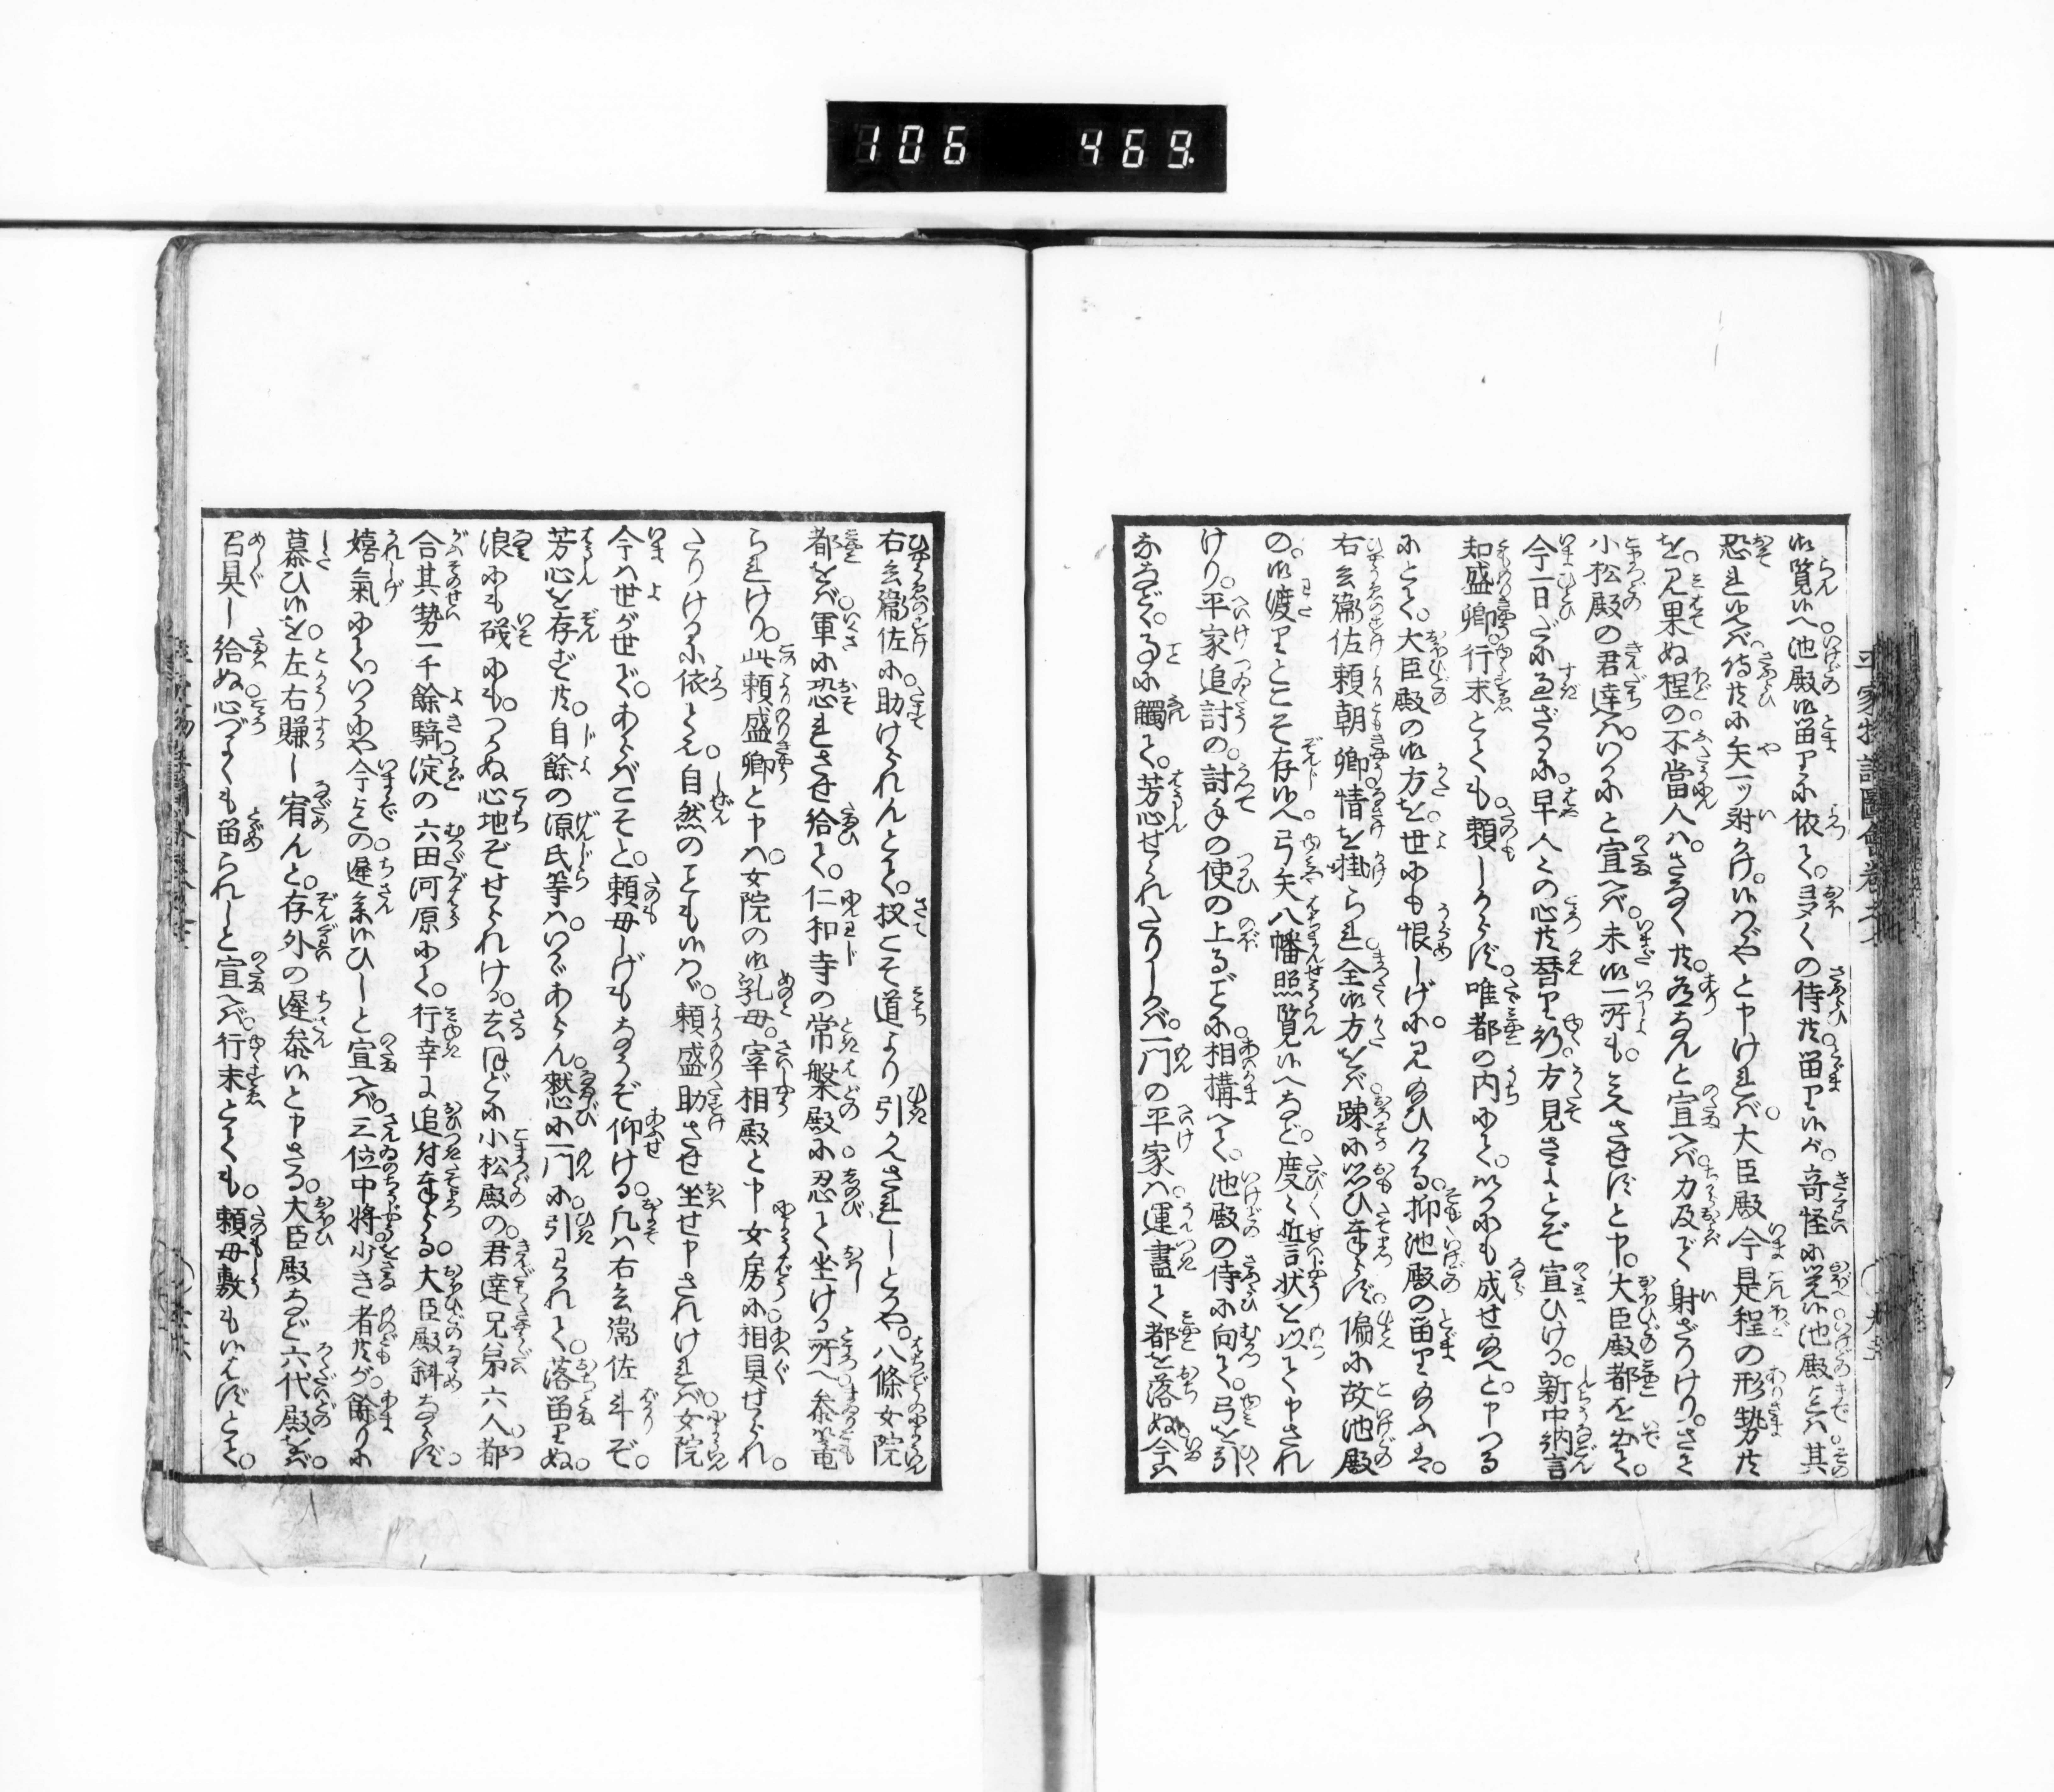 106 469.
御覧候へ池殿御留りに依て。多くの侍共留り候が。奇怪に覚候池殿までは其
恐も候へば侍共に矢一ッ射かけ。候はゞやと申ければ。大臣殿今是程の形勢共
を。見果ぬ程の不當人は。さなく共。有なんと宣へば力及で射ざりけり。さて
小松殿の君達は。いかにと宣へば。未御一所も。見えさせ給はずと申。大臣殿都を出て。
今一日だに過ざるに。早人々の心共替り行。方見さよとぞ宣ひける。新中納言
知盛卿。行末とても。頼しからず。唯都の内にて。いかにも成せ給へと。申つる
にとて。大臣殿の御方を。世にも恨しげに。見給ひける。抑池殿の留り給ふは。
右兵衛佐頼朝卿。情を掛られ。全御方をば。疎に思ひ奉らず。偏に故池殿
の。御渡りとこそ存候へ。弓矢八幡照覧候へなど。度々誓言状を以て申され
けり。平家追討の。討手の使の上るごとに。相搆へて。池殿の侍に向て。弓を引
ななど。ことに觸て。芳心せられたりしかば。一門の平家は。運盡て都を落ぬ。今は
右兵衛佐に。助けられんとて。扨こそ道より引かへされしとかや。八條女院
都をば。軍に恐れさせ給て。仁和寺の常盤殿に。忍て坐ける所へ。参篭
られけり。此頼盛卿と申は。女院の御乳母。宰相殿と申女房に。相具せられ。
たりけるに依てなり。自然のことも候はゞ。頼盛助させ坐せ申されければ。女院
今は世が世で。あらばこそと。頼母しげもなうぞ仰ける。凡は右兵衛佐斗ぞ。
芳心を存ずれ共。自餘の源氏等は。いかゞあらん。憖に一門に。引わかれて。落留りぬ。
浪にも礒にも。つかぬ心地ぞせられける。去ほどに小松殿の。君達兄弟六人。都
合其勢一千餘騎。淀の六田河原にて。行幸に追付奉る。大臣殿斜ならず。
嬉氣にて。いかにや今までの。遅参候ひしと宣へば。三位中将少き者共が。餘りに
慕ひ候を。左右賺し宥んと。存外の遅参候と申さる。大臣殿など六代殿をば。
召具し給ぬ。心づよくも留られしと宣へば。行末とても。頼母敷もいはずとて。